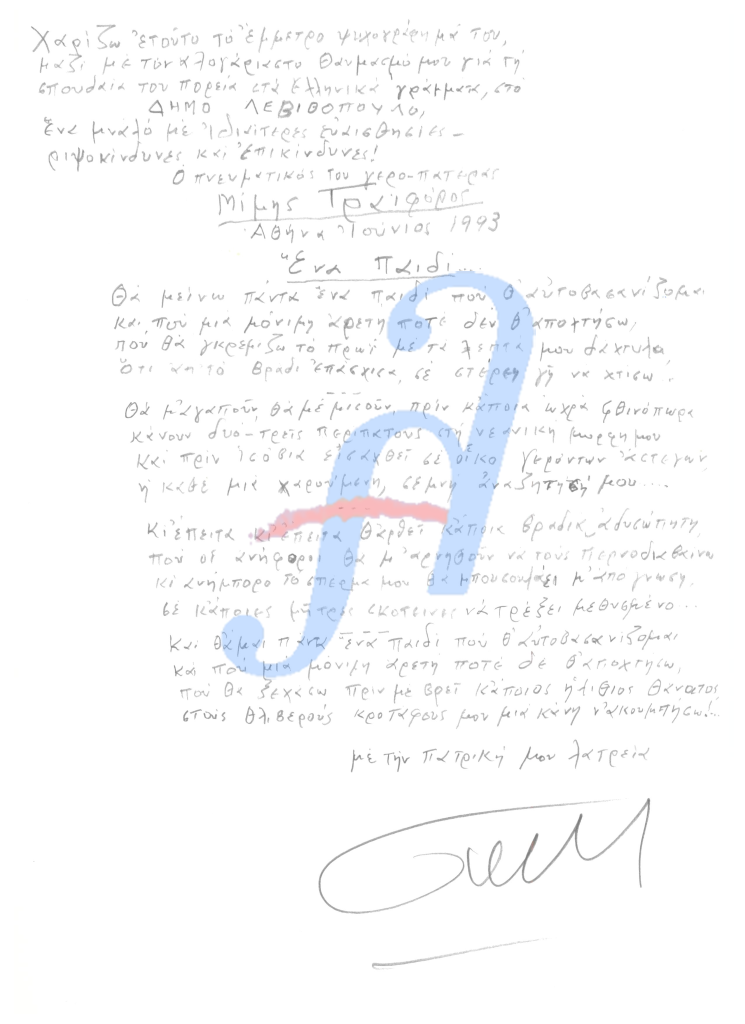 Χαρίζω ἐτοῦτο τό ἔμμετρο ψυχογράφημά του,
μαζί μέ τόν ἀλογάριαστο θαυμασμό μου γιά τή
σπουδαία του πορεία στά ἑλληνικά γράμματα, στό
ΔΗΜΟ ΛΕΒΙΘΟΠΟΥΛΟ,
ἕνα μυαλό μέ ἰδιαίτερες εὐαισθησίες –
ριψοκίνδυνες καί ἐπικίνδυνες!
Ὁ πνευματικός του γερο-πατέρας
Μίμης Τραϊφόρος
Ἀθήνα Ἰούνιος 1993
"Ἕνα παιδί...
Θά μείνω πάντα ἕνα παιδί πού θ' αὐτοβασανίζομαι
καί πού μιά μόνιμη ἀρετή ποτέ δέν θ' ἀποχτήσω,
πού θά γκρεμίζω τό πρωί μέ τά λεπτά μου δάχτυλα
ὅτι τό βράδι ἐπάσχισα, σέ στέρεη γῆ νά χτίσω.
Θά μ' ἀγαποῦν, θά μέ μισοῦν, πρίν κάποια ὠχρά φθινόπωρα
κάνουν δυο-τρεῖς περιπάτους στή νεανική μορφή μου
καί πρίν ἰσόβια εἰσαχθεῖ σέ οἶκο γερόντων ἀστέγων
ἡ κάθε μιά χαρούμενη, σεμνή ἀναζήτησή μου....
Κι ἔπειτα κι ἔπειτα θἄρθει κάποια βραδιά ἀδυσώπητη
πού οἱ ἀνήφοροι θά μ' ἀρνηθοῦν νά τούς περνοδιαβαίνω
κι ἀνήμπορο τό σπέρμα μου θά μπουσουλάει μ' ἀπόγνωση,
σέ κάποιες μῆτρες σκοτεινές νά τρέξει μεθυσμένο...
Καί θἆμαι πάντα ἕνα παιδί πού θ' αὐτοβασανίζομαι
καί πού μιά μόνιμη ἀρετή ποτέ δέ θ' ἀποχτήσω,
πού θά ξεχάσω πρίν μέ βρεῖ κάποιος ἠλίθιος θάνατος
στούς θλιβερούς κροτάφους μου μιά κάνη ν' ἀκουμπήσω!...
μέ τήν πατρική μου λατρεία